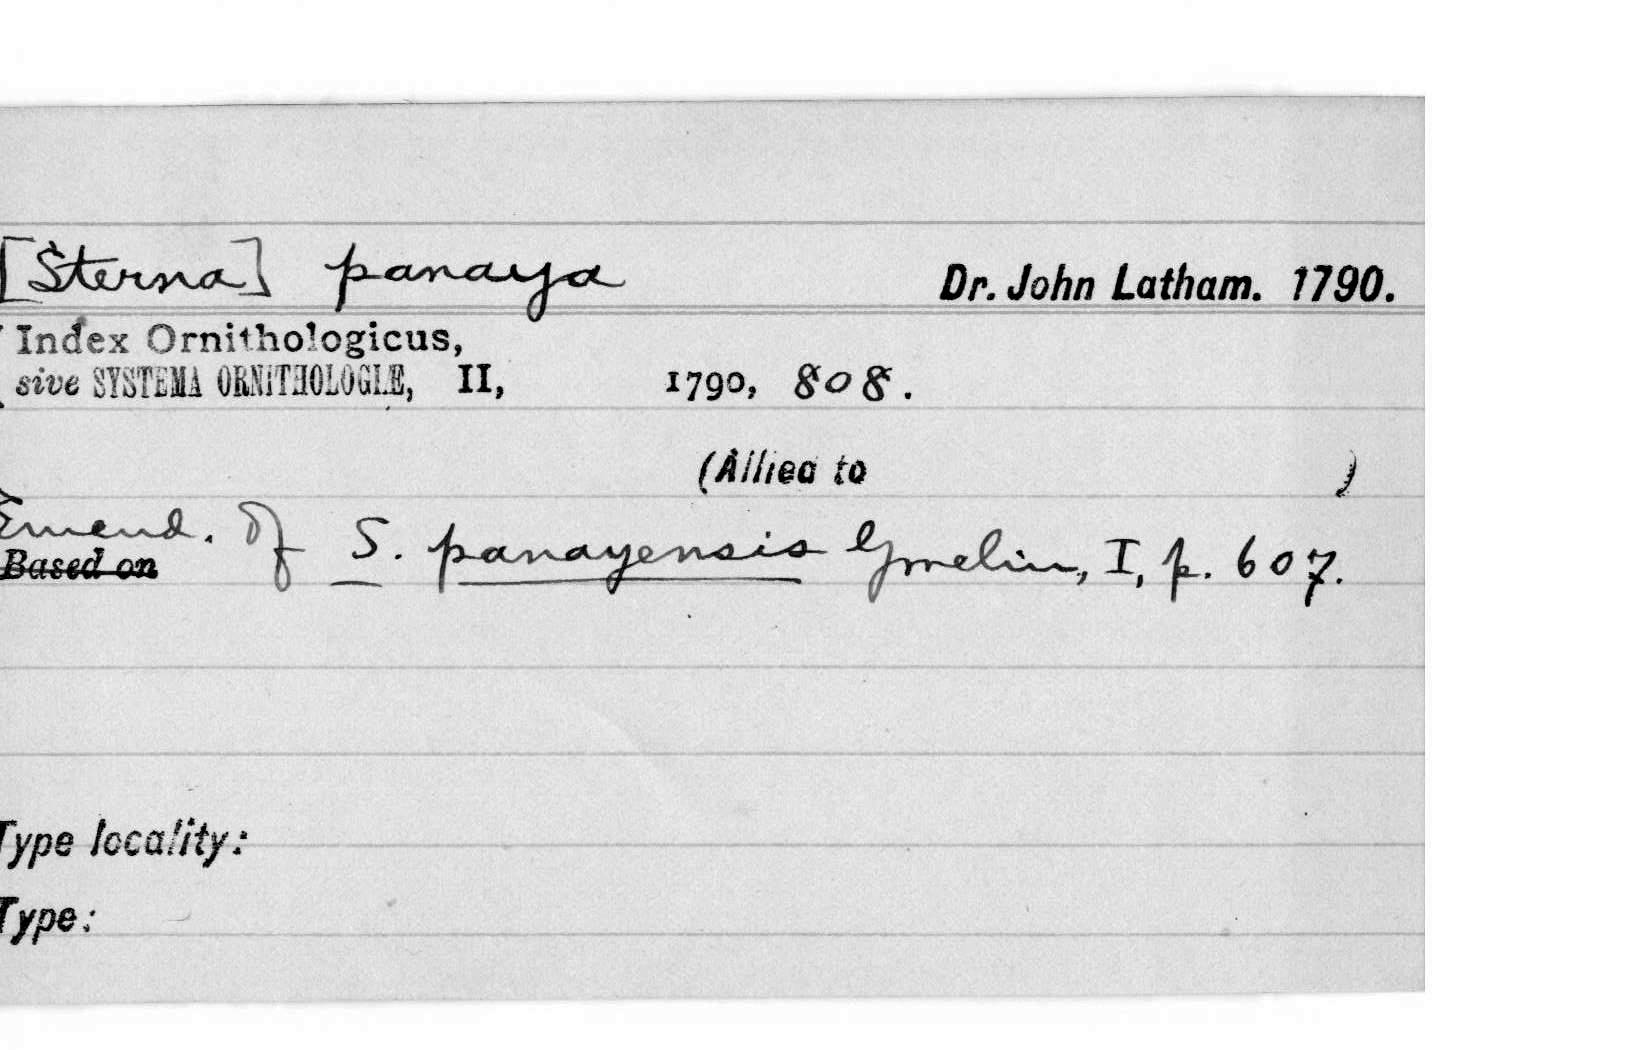 [Sterna] panaya Dr. John Latham. 1790.
Index Ornithologicus,
sive SYSTEMA ORNITHOLOGIÆ, II, 1790, 808.
(Allied to )
Emend. Of S. panayensis Gmelin, I, p. 607.
Based on
Type locality:
Type: